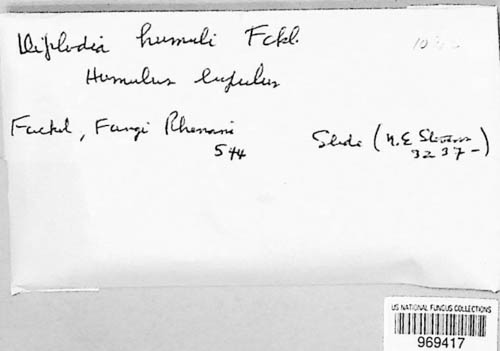 Diplodia humuli Fckl.
Humulus lupulus
Fuckel, Fungi Rhenani
544
Slide (N. E. Stevens
3237-)
US NATIONAL FUNGUS COLLECTIONS
969417